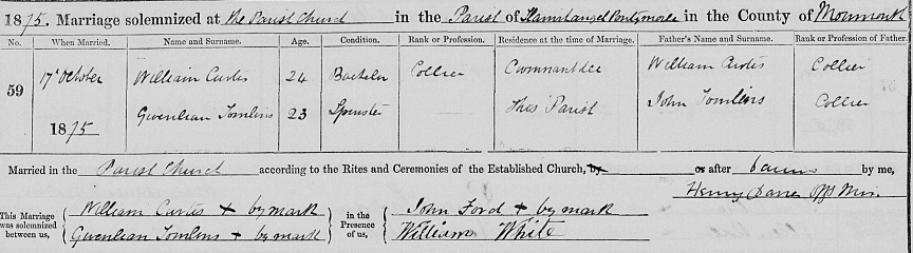 1875. Marriage solemnized at the Parish Church in the Parish of Llanvihangel Pontymoile in the County of Monmouth
No. When Married. Name and Surname. Age. Condition. Rank or Profession. Residence at the time of Marriage. Father's Name and Surname. Rank or Profession of Father.
59 17th October William Curtes 24 Bachelor Collier Cwmnantddu William Curtes Collier
1875 Gwenlian Tomlins 23 Spinster This Parish John Tomlins Collier
Married in the Parish Church according to the Rites and Ceremonies of the Established Church, by or after banns by me,
Henry Davies Off Min.
This Marriage was solemnized between us, William Curtes + by mark in the Presence of us, John Ford + by mark
Gwenlian Tomlins + by mark William White